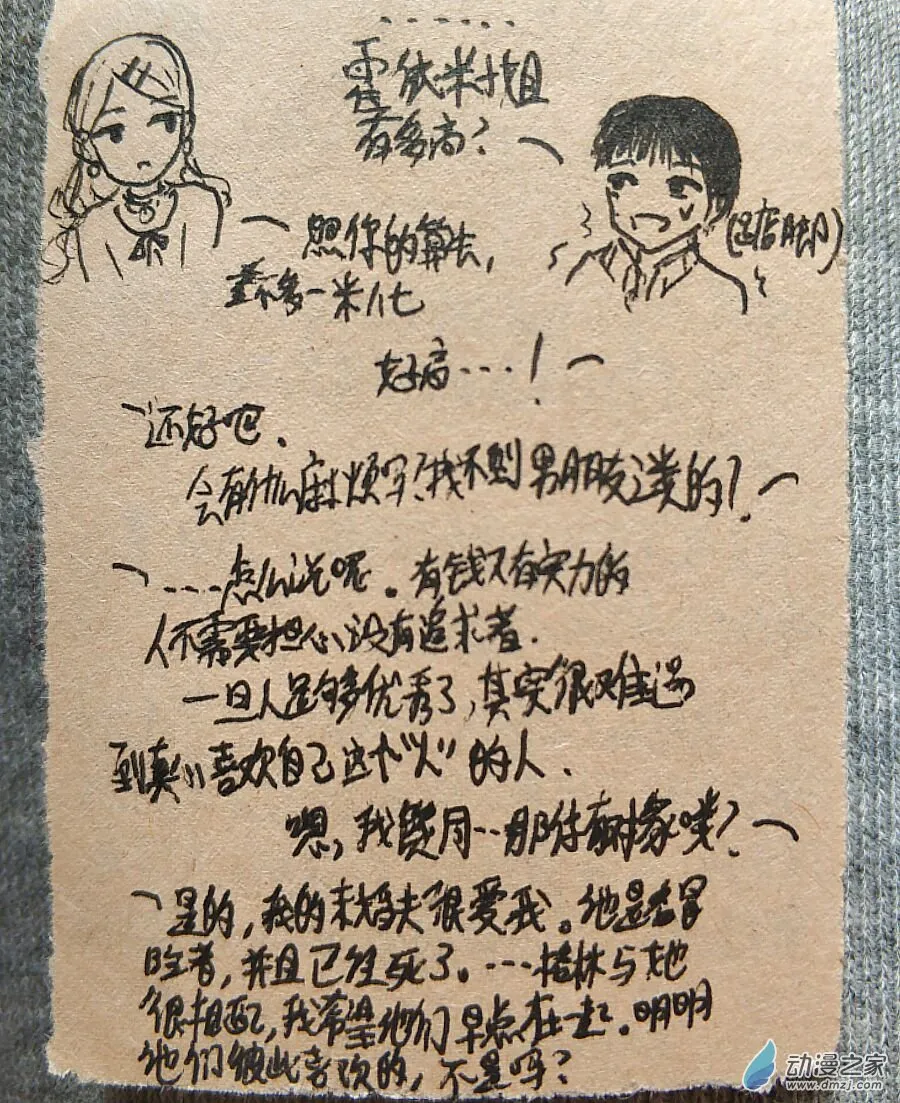 .......
雷依米姐
有多高?
照你的算法,
差不多一米八七
(迅店脚)
好高....!
还好吧.
会有什么麻烦吗?找不到男朋友之类的?
....怎么说呢。有钱又有实力的
人不需要担心没有追求者.
一旦人足够多优秀了,其实很难遇
到真心喜欢自己这个"人"的人.
嗯,我美月..那你有对象喽?
是的,我的未婚夫很爱我。他是名冒
险者,并且已经死了。...榙林与她
很相配,我希望他们早点在一起。明明
他们彼此喜欢的,不是吗?
动漫之家
www.dmzj.com